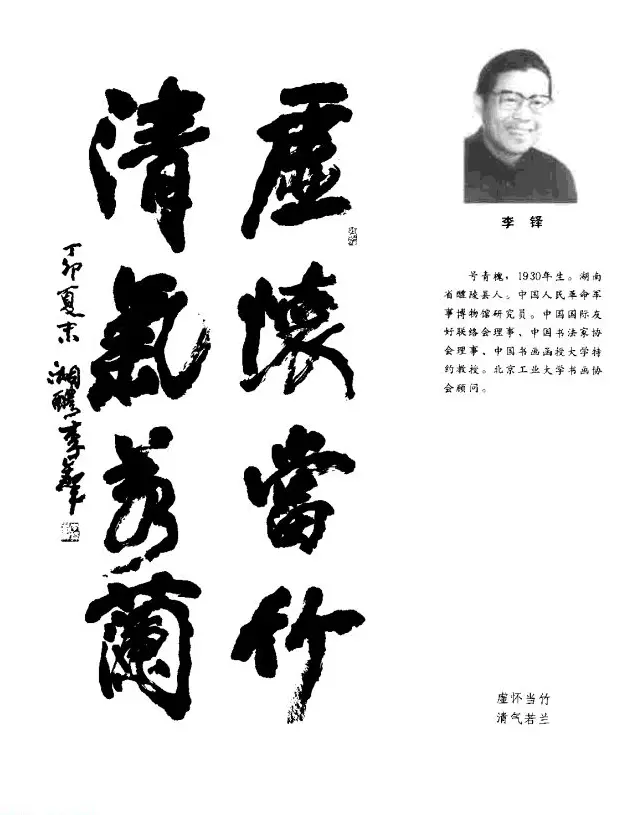 虛懷當竹
清氣若蘭
丁卯夏末 湘醴李鐸
李 铎
号青槐，1930年生。湖南
省醴陵县人。中国人民革命军
事博物馆研究员。中国国际友
好联络会理事、中国书法家协
会理事、中国书画函授大学特
约教授。北京工业大学书画协
会顾问。
虚怀当竹
清气若兰